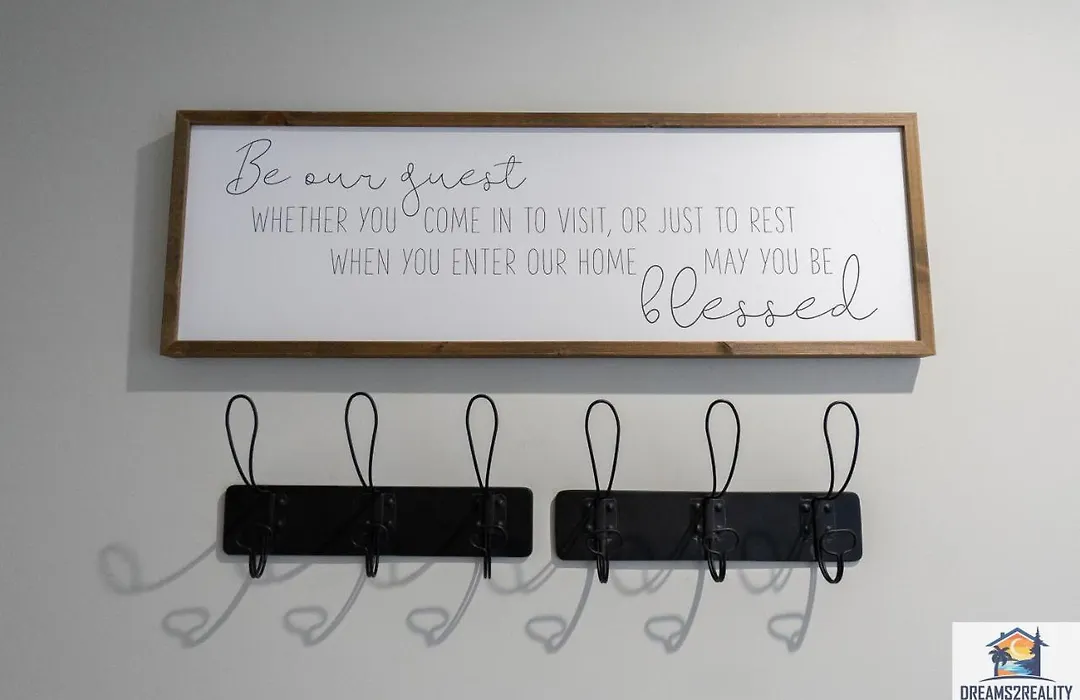 Be our guest
WHETHER YOU COME IN TO VISIT, OR JUST TO REST
WHEN YOU ENTER OUR HOME MAY YOU BE
blessed
DREAMS2REALITY